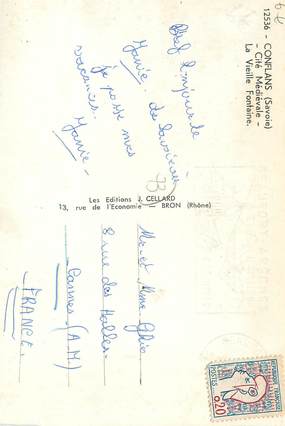 12536 - CONFLANS (Savoie)
- Cité Médiévale -
La Vieille Fontaine.
Bref bonjour de
Savoie
je passe mes
vacances.
73
Les Editions J. CELLARD
13, rue de l'Economie — BRON (Rhône)
Mr et Mme
8 rue des Halles
Cannes (A.M)
FRANCE.
POSTES
0,20